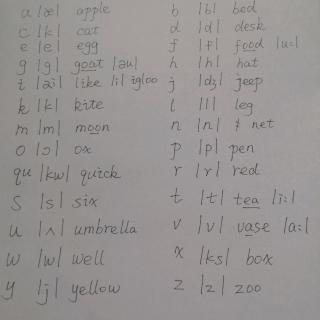 a |æ| apple b |b| bed
c |k| cat d |d| desk
e |e| egg f |f| food |u:|
g |g| goat |əu| h |h| hat
i |ai| like |i| igloo j |dʒ| jeep
k |k| kite l |l| leg
m |m| moon n |n| net
o |ɔ| ox p |p| pen
qu |kw| quick r |r| red
s |s| six t |t| tea |i:|
u |ʌ| umbrella v |v| vase |a:|
w |w| well x |ks| box
y |j| yellow z |z| zoo